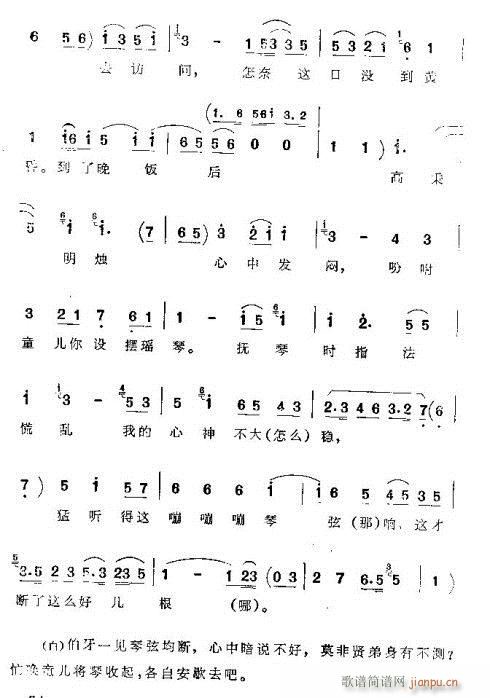 6 5 6) i 3 5 i 3 - 1 5 3 3 5 5 3 2 1 6 1
去访问, 怎奈这日没到黄
(1. 6 56i 3.2
1 i6 i5 i6 5 6 5 5 6 0 0 1 1) i.
昏。到了晚饭后 高采
5 i i. (7 6 5) 3 2 i i 3 - 4 3
明烛 心中发闷, 吩咐
3 2 1 7 6 1 1 - i 5 i i 2. 5 5
童儿你设摆瑶琴。抚琴时指法
i 3 - 5 5 3 i i 6 5 4 3 2.3 4 6 3.2 7 (6
慌乱 我的心神不大(怎么)稳,
7) 5 i 5 7 6 6 6 1 i 6 5 4 5 3 5
猛听得这嘣嘣嘣琴弦(那)响,这才
3.5 2 3 5.3 2 3 5 i - 1 2 3 (0 3 2 7 6.5 5 1)
断了这么好几根(哪)。
(白)伯牙一见琴弦均断,心中暗说不好,莫非贤弟身有不测?
忙唤童儿将琴收起,各自安歇去吧。
歌谱简谱网
jianpu.cn